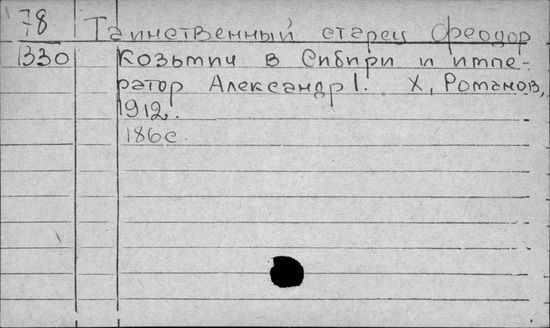 78 Таинственный старец Феодор
1330 Козьмич в Сибири и импе-
ратор Александр I. Х, Романов,
1912.
186с.